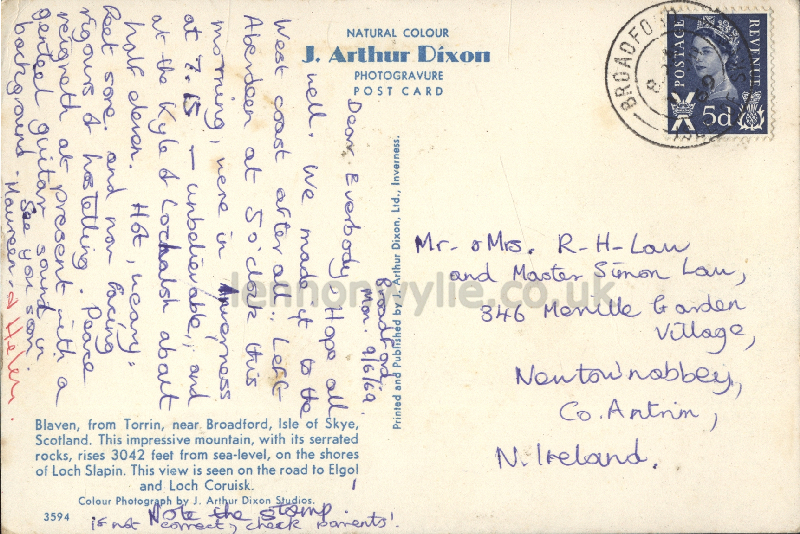 NATURAL COLOUR
J. Arthur Dixon
PHOTOGRAVURE
POST CARD
Broadford,
Mon. 9/6/69.
Dear Everybody, Hope all
well. We made it to the
West coast after all! Left
Aberdeen at 5 o'clock this
morning, were in Inverness
at 7.15 – unbelievable, and
at the Kyle of Lochalsh about
half eleven. Hot, weary,
feet sore and now facing
rigours of hostelling. Peace
reigneth at present with a
genteel guitar sound in
background. See you soon
Maureen & Helen.
Blaven, from Torrin, near Broadford, Isle of Skye,
Scotland. This impressive mountain, with its serrated
rocks, rises 3042 feet from sea-level, on the shores
of Loch Slapin. This view is seen on the road to Elgol
and Loch Coruisk.
Colour Photograph by J. Arthur Dixon Studios.
3594
Note the stamp!
is not correct, check parents!
Printed and Published by J. Arthur Dixon, Ltd., Inverness.
BROADFO
POSTAGE
REVENUE
5d
Mr. & Mrs. R-H-Law
and Master Simon Law,
346 Merville Garden
Village,
Newtownabbey,
Co. Antrim,
N. Ireland.
lennonwylie.co.uk